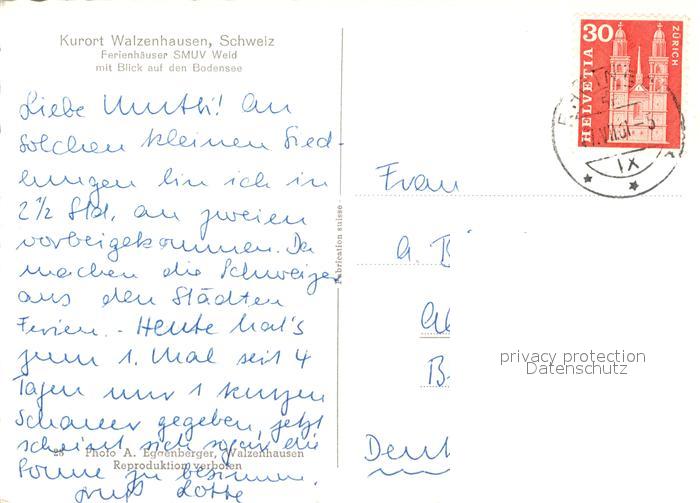 Kurort Walzenhausen, Schweiz
Ferienhäuser SMUV Weid
mit Blick auf den Bodensee
Liebe Mutti! An
solchen kleinen Sied-
lungen bin ich in
2½ Std. an zweien
vorbeigekommen. Da
machen die Schweizer
aus den Städten
Ferien. - Heute hat's
zum 1. Mal seit 4
Tagen nur 1 kurzen
Schauer gegeben, jetzt
scheint sich sogar die
Sonne zu besinnen.
Gruß Lotte
Photo A. Eggenberger, Walzenhausen
Reproduktion verboten
Fabrication suisse
30
HELVETIA
ZÜRICH
IX
Frau
A. B
B
Deut
privacy protection
Datenschutz